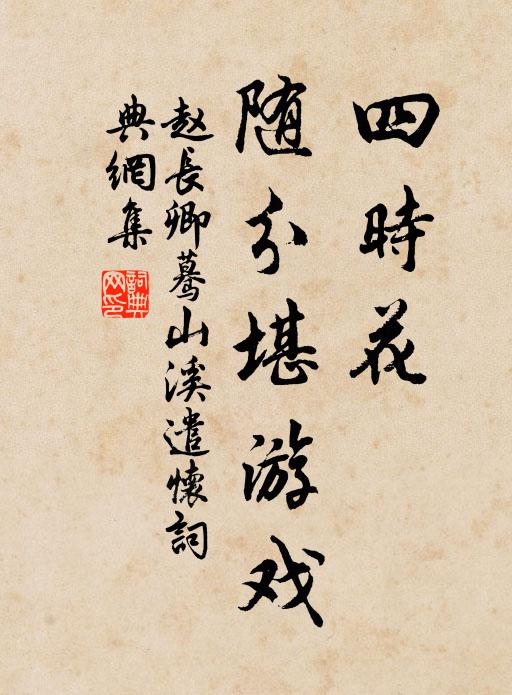 四時花
随分堪游戏
赵長卿蓦山溪遣懷詞
典網集
詞典网印